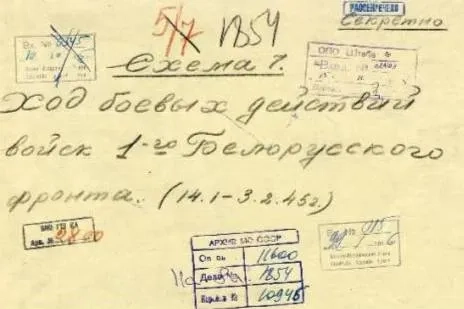 5/7 1854
РАССЕКРЕЧЕНО
Секретно
Вх. №
ОПО Штаба
Схема 7.
Ход боевых действий
войск 1-го Белорусского
фронта. (14.1-3.2.45г.)
Арх. № 2800
АРХИВ МО СССР
Оп нь 11600
Дело № 1854